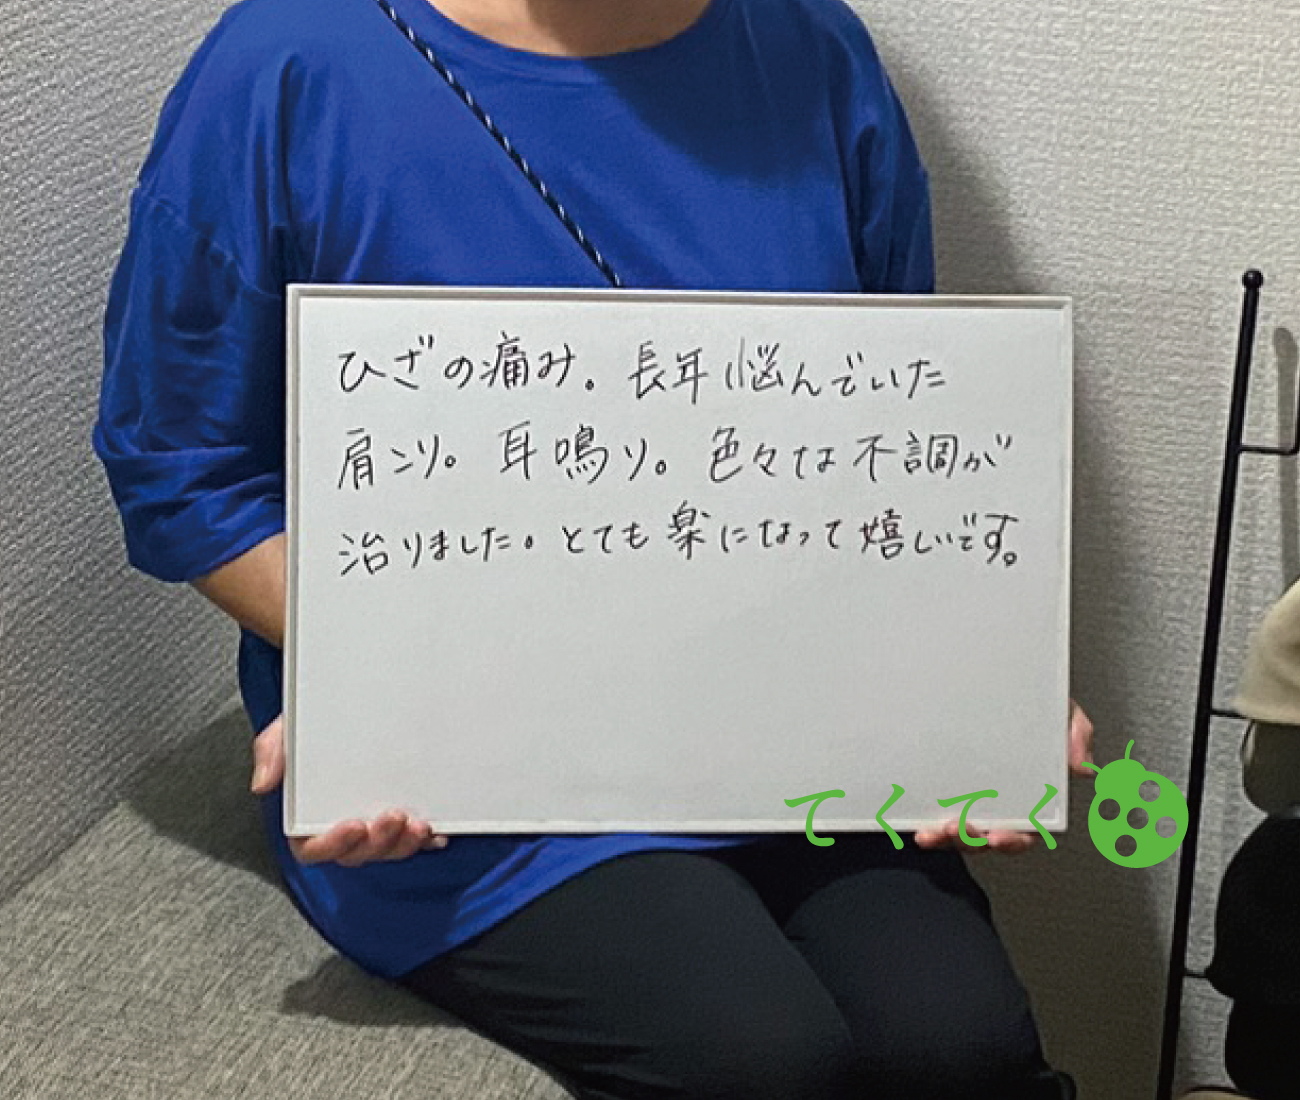 ひざの痛み。長年悩んでいた
肩コリ。耳鳴り。色々な不調が
治りました。とても楽になって嬉しいです。
てくてく